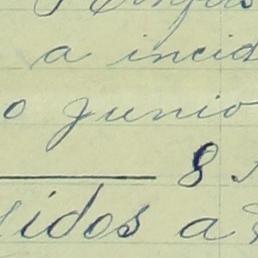 a incid
o junio
8
idos a